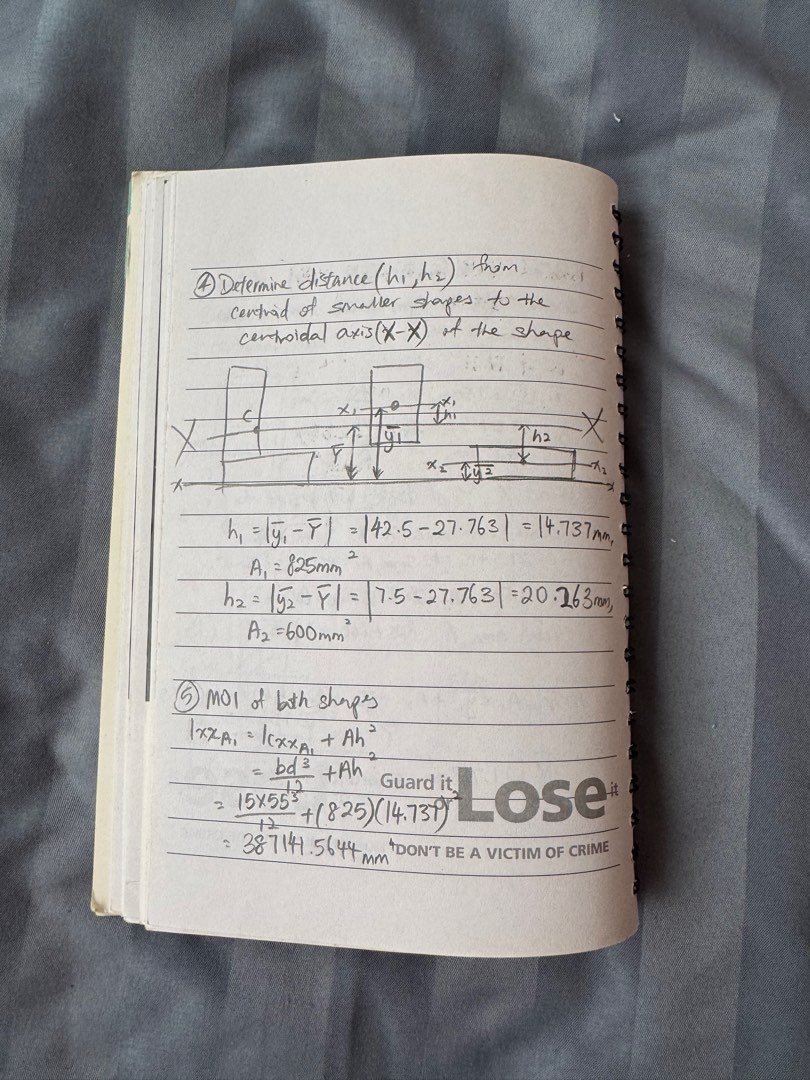 ④ Determine distance (h₁, h₂) from
centroid of smaller shapes to the
centroidal axis (X-X) of the shape
C x₁ x₁ h₁
X Ȳ ȳ₁ h₂ X
x x₂ ȳ₂ x₂ x
h₁ = |ȳ₁ - Ȳ| = |42.5 - 27.763| = 14.737mm,
A₁ = 825mm²
h₂ = |ȳ₂ - Ȳ| = |7.5 - 27.763| = 20.263mm,
A₂ = 600mm²
⑤ MOI of both shapes
IxxA₁ = IcxxA₁ + Ah²
= bd³/12 + Ah²
= 15×55³/12 + (825)(14.737)²
= 387141.5644 mm⁴
Guard it
Lose it
DON'T BE A VICTIM OF CRIME